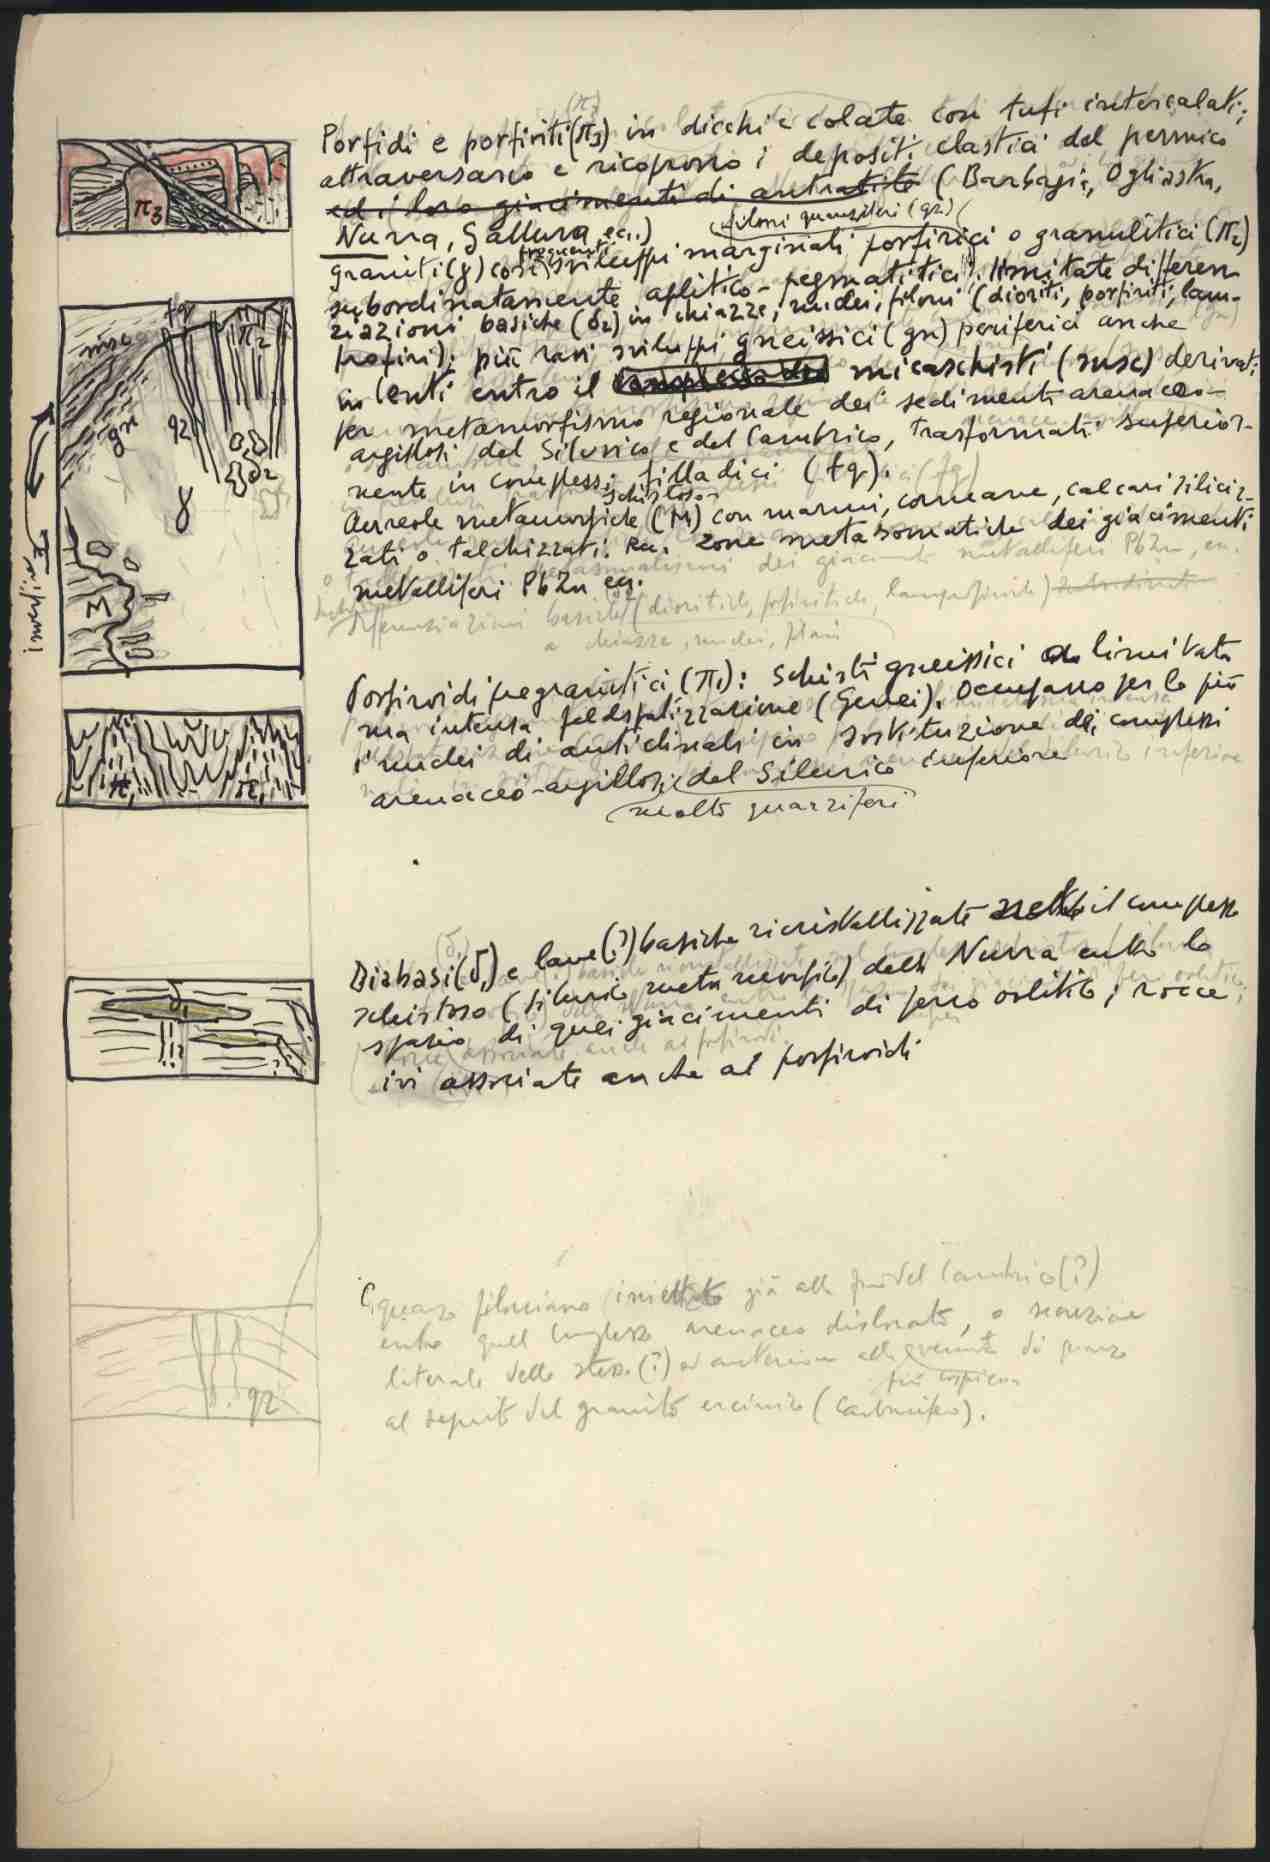 Porfidi e porfiriti (π3) in dicchi e colate con tufi intercalati;
attraversano e ricoprono i depositi clastici del permico
ed i loro giacimenti di antracite (Barbagia, Ogliastra,
Nurra, Gallura ecc.)
filoni quarziferi (qz)
graniti (γ) con frequenti sviluppi marginali porfirici o granulitici (π2)
subordinatamente aplitico-pegmatitici; limitate differen
ziazioni basiche (δ2) in chiazze, nuclei, filoni (dioriti, porfiriti, lam-
profiri); più rari sviluppi gneissici (gn) periferici anche
in lenti entro il micaschisti (msc) derivati
per metamorfismo regionale dei sedimenti arenaceo-
argillosi del Silurico e del Cambrico, trasformati superior-
mente in complessi filladici (fq).
schistoso
Aureole metamorfiche (M) con marmi, corneane, calcari siliciz-
zati o talchizzati. Zone metasomatiche dei giacimenti
metalliferi PbZn ecc.
Differenziazioni basiche (dioritiche, porfiritiche, lamprofiriche)
a chiazze, nuclei, filoni
Porfiroidi pregranitici (π1): schisti gneissici a limitata
ma intensa feldspatizzazione (Genei). Occupano per lo più
i nuclei di anticlinali in sostituzione dei complessi
arenaceo-argillosi del Silurico inferiore
molto quarziferi
Diabasi (δ1) e lave (?) basiche ricristallizzate il complesso
schistoso (silurico metamorfico) della Nurra entro lo
spazio di quei giacimenti di ferro oolitico; rocce
ivi associate anche ai porfiroidi
quarzo filoniano iniettato già alla fine del Cambrico (?)
entro quel complesso arenaceo dislocato, o secrezione
laterale dello stesso (?) ed anteriore alle venute di quarzo
più cospicue
al seguito del granito ercinico (Carbonifero).
π3
msc
fq
π2
gn
qz
δ2
γ
M
π1
π1
δ1
qz